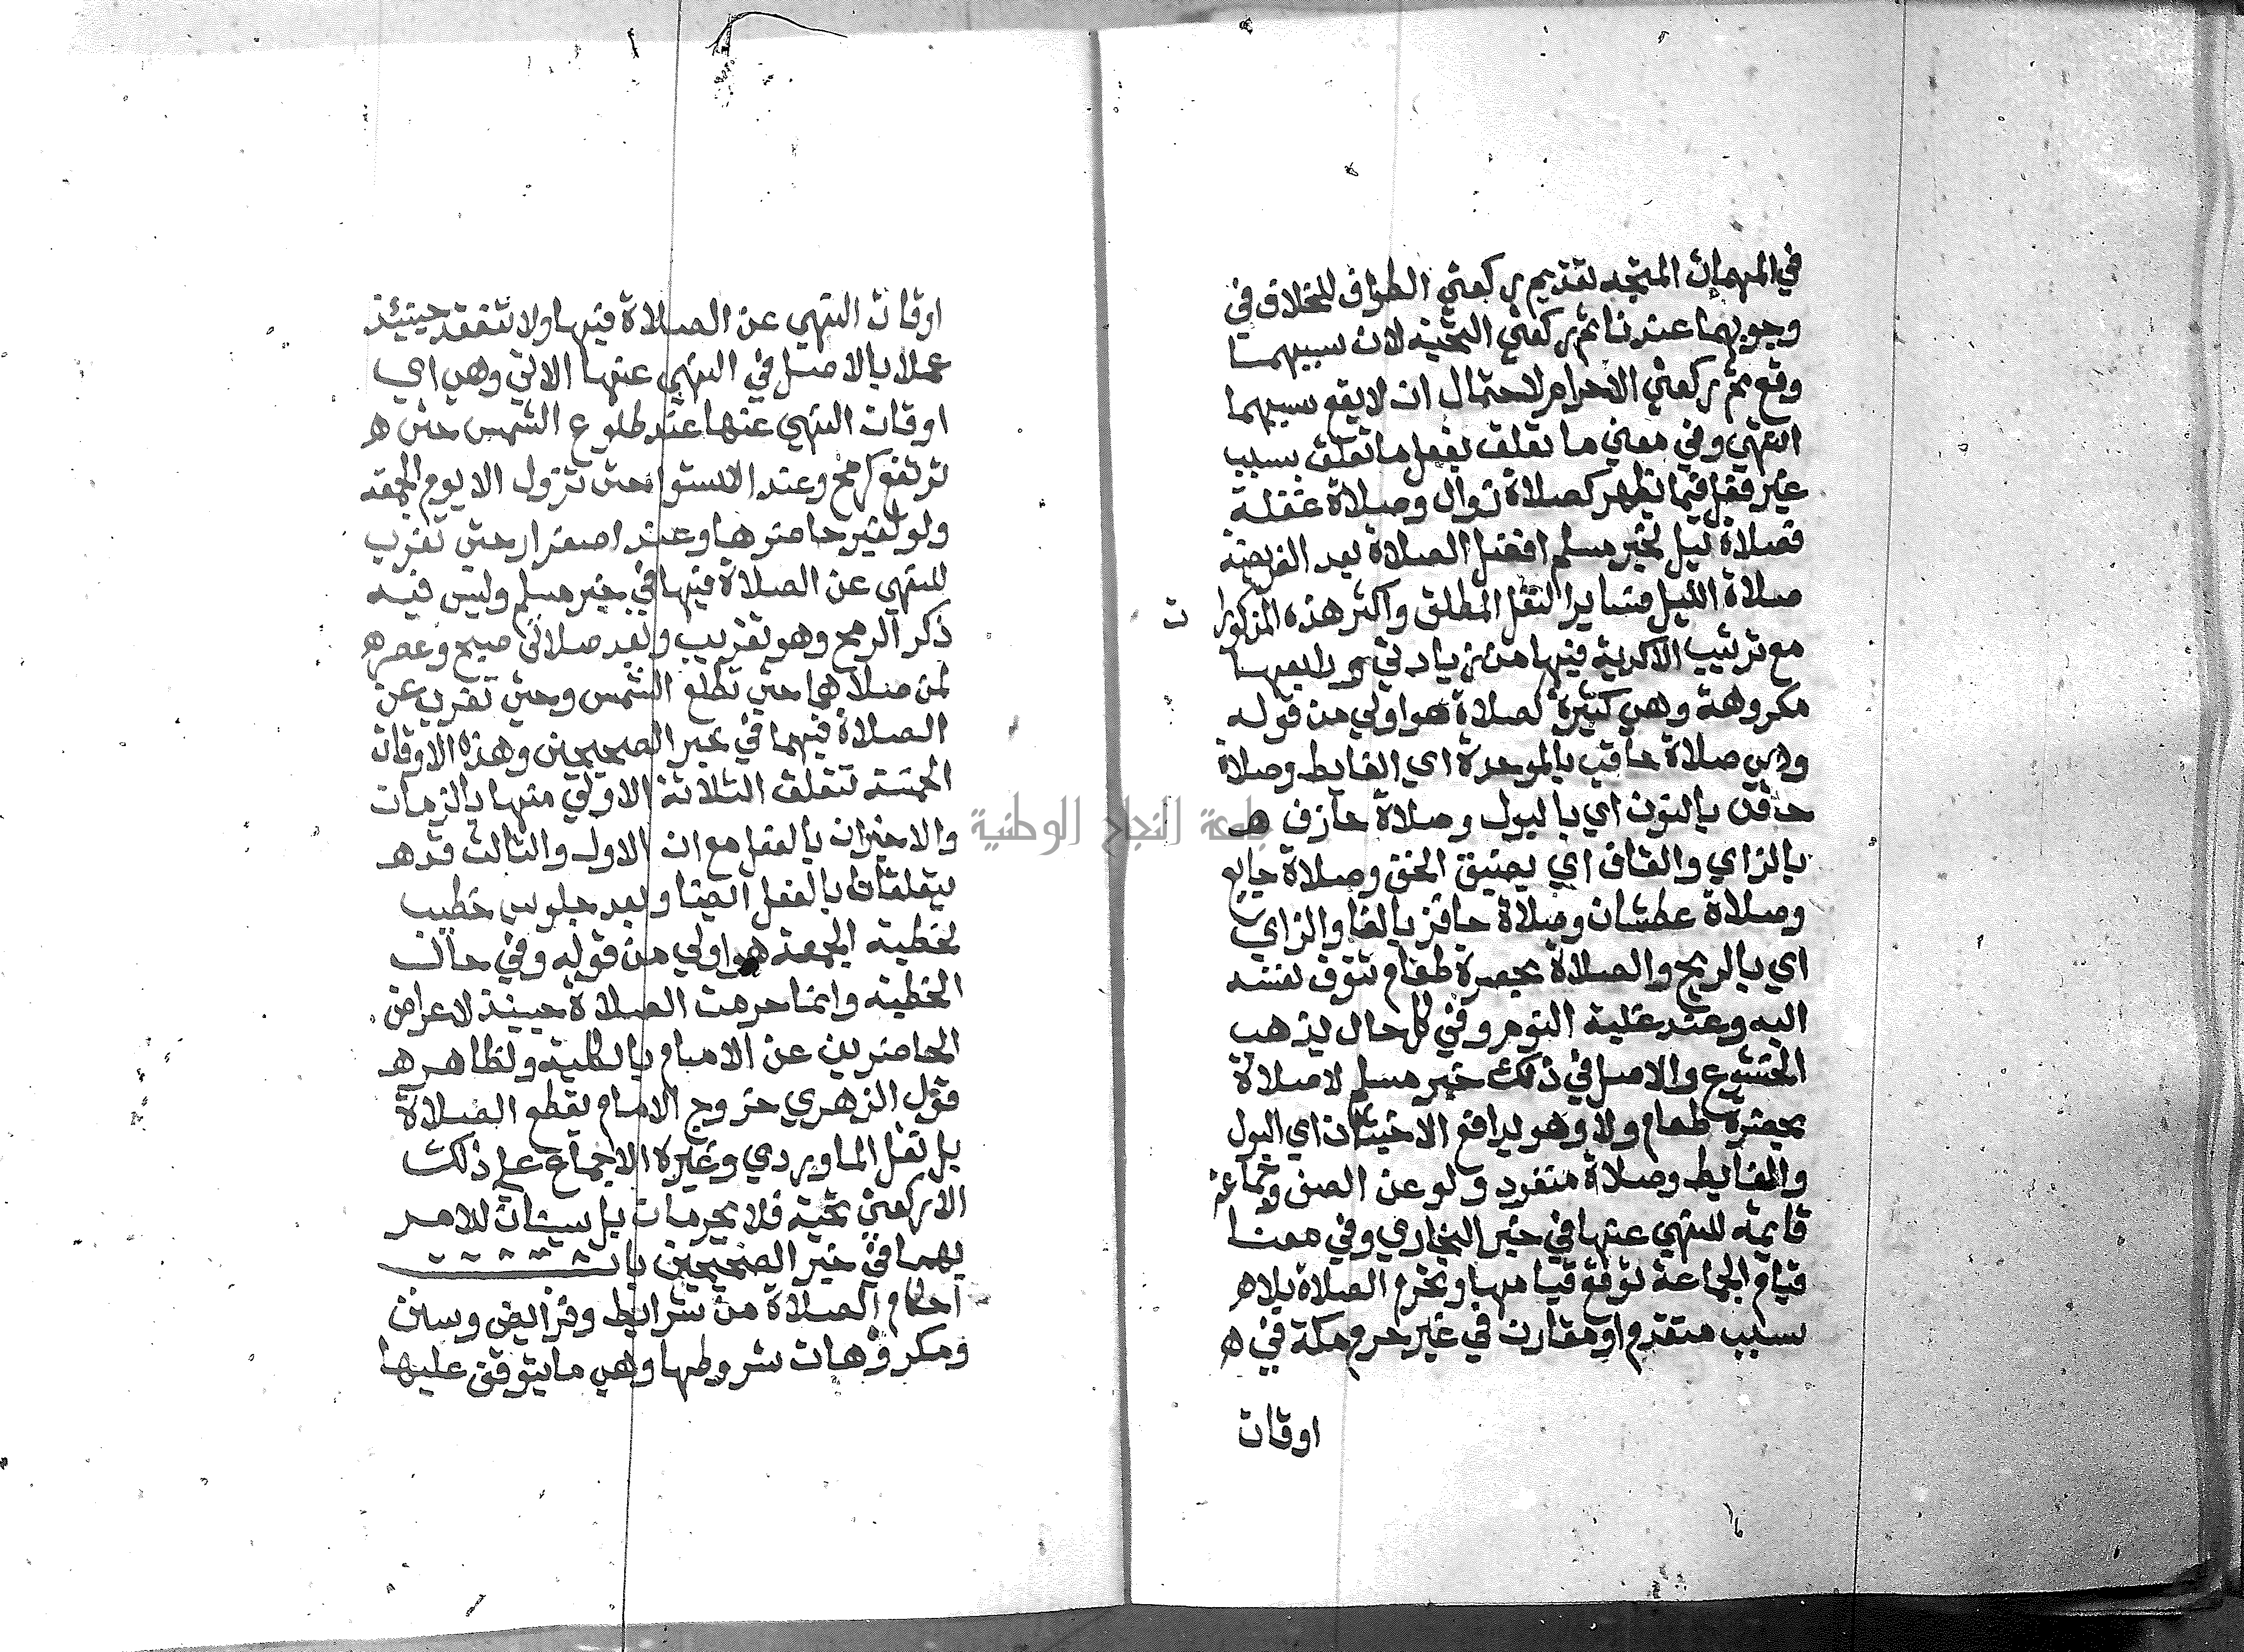 في المهمات المتجه تقديم ركعتي الطواف للخلاف في
وجوبهما عندنا ثم ركعتي التحية لان سببهما
وقع ثم ركعتي الاحرام لاحتمال ان لا يقع سببهما
انتهي وفي معني ما تعلق بفعل ما تعلق بسبب
غير فعل فيما يظهر كصلاة زوال وصلاة غفلة
فصلاة ليل لخبر مسلم افضل الصلاة بعد الفريضة
صلاة الليل فساير النفل المطلق واكثر هذه المذكورات
مع ترتيب الاكدية فيها من زيادتي
مكروهة وهي كثيرة كصلاة هو اولي من قوله
وهي صلاة حاقب بالموحدة اي الغايط وصلاة
حاقن بالنون اي بالبول وصلاة حازق ه
بالزاي والقاف اي بضيق الخف وصلاة جايع
وصلاة عطشان وصلاة حافز بالفا والزاي
اي بالريح والصلاة بحضرة طعام تتوق نفسه
اليه وعند غلبة النوم وفي كل حال يذهب
الخشوع والاصل في ذلك خبر مسلم لا صلاة
بحضرة طعام ولا وهو يدافع الاخبثان اي البول
والغايط وصلاة منفرد ولو عن الصف وجماعة
قايمة للنهي عنها في خبر البخاري وفي معنا
قيام الجماعة توقع قيامها وتحرم الصلاة بلا ه
سبب متقدم او مقارن في غير حرم مكة في ه
اوقات
جامعة النجاح الوطنية
اوقات النهي عن الصلاة فيها ولا تنعقد حينئذ
عملا بالاصل في النهي عنها الاتي وهي اي
اوقات النهي عنها عند طلوع الشمس حتي ه
ترتفع كرمح وعند الاستوا حتي تزول الا يوم الجمعه
ولو لغير حاضرها وعند اصفرار حتي تغرب
للنهي عن الصلاة فيها في خبر مسلم وليس فيه
ذكر الرمح وهو تقريب وبعد صلاتي صبح وعصر ه
لمن صلاهما حتي تطلع الشمس وحتي تغرب عن
الصلاة فيهما في خبر الصحيحين وهذه الاوقات
الخمسة تتعلق الثلاثة الاولي منها بالزمان
والاخيران بالفعل مع ان الاول والثالث قد ه
يتعلقان بالفعل ايضا وبعد جلوس خطيب
لخطبة الجمعة هو اولي من قوله وفي حال
الخطبة وانما حرمت الصلاة حينئذ لاعراض
الحاضرين عن الامام بالكلية ولظاهر ه
قول الزهري خروج الامام يقطع الصلاة
بل نقل الماوردي وغيره الاجماع علي ذلك
الا ركعتي تحية فلا يحرمان بل يسنان للامر
بهما في خبر الصحيحين باب
احكام الصلاة من شرايط وفرايض وسنن
ومكروهات شروطها وهي ما يتوقف عليها